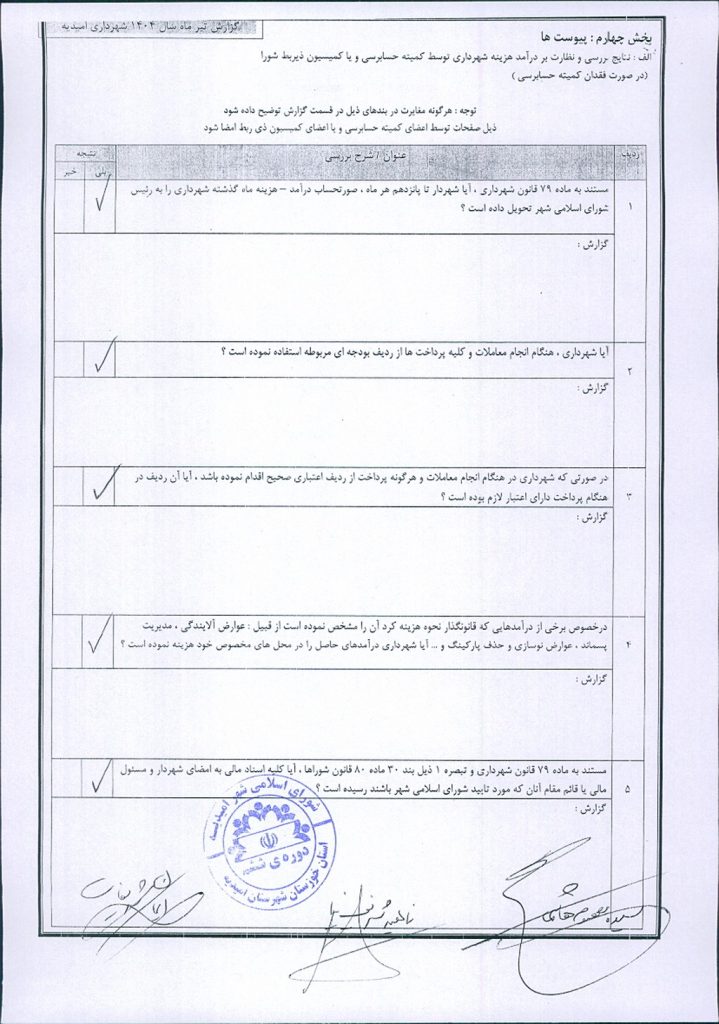 گزارش تیر ماه سال ۱۴۰۴ شهرداری امیدیه
بخش چهارم : پیوست ها
الف : نتایج بررسی و نظارت بر درآمد هزینه شهرداری توسط کمیته حسابرسی و یا کمیسیون ذیربط شورا
(در صورت فقدان کمیته حسابرسی )
توجه : هرگونه مغایرت در بندهای ذیل در قسمت گزارش توضیح داده شود
ذیل صفحات توسط اعضای کمیته حسابرسی و یا اعضای کمیسیون ذی ربط امضا شود
ردیف
عنوان / شرح بررسی
نتیجه
بلی
خیر
۱
مستند به ماده ۷۹ قانون شهرداری ، آیا شهردار تا پانزدهم هر ماه ، صورتحساب درآمد – هزینه ماه گذشته شهرداری را به رئیس
شورای اسلامی شهر تحویل داده است ؟
گزارش :
۲
آیا شهرداری ، هنگام انجام معاملات و کلیه پرداخت ها از ردیف بودجه ای مربوطه استفاده نموده است ؟
گزارش :
۳
در صورتی که شهرداری در هنگام انجام معاملات و هرگونه پرداخت از ردیف اعتباری صحیح اقدام نموده باشد ، آیا آن ردیف در
هنگام پرداخت دارای اعتبار لازم بوده است ؟
گزارش :
۴
درخصوص برخی از درآمدهایی که قانونگذار نحوه هزینه کرد آن را مشخص نموده است از قبیل : عوارض آلایندگی ، مدیریت
پسماند ، عوارض نوسازی و حذف پارکینگ و ... آیا شهرداری درآمدهای حاصل را در محل های مخصوص خود هزینه نموده است ؟
گزارش :
۵
مستند به ماده ۷۹ قانون شهرداری و تبصره ۱ ذیل بند ۳۰ ماده ۸۰ قانون شوراها ، آیا کلیه اسناد مالی به امضای شهردار و مسئول
مالی یا قائم مقام آنان که مورد تایید شورای اسلامی شهر باشند رسیده است ؟
گزارش :
شورای اسلامی شهر امیدیه
دوره ی ششم
استان خوزستان شهرستان امیدیه